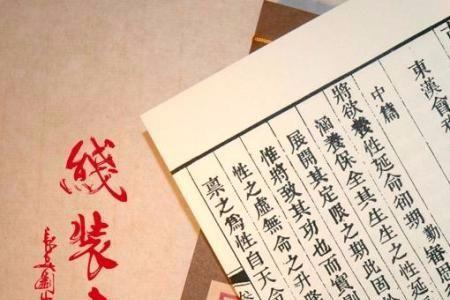 東漢會
中篇
將欲養性延命卻期勤審
涵養保全其生生之性
展開其定限之期此固
惟將致其功也而實
性之虛無命之升
稟之為性自天命
綫装